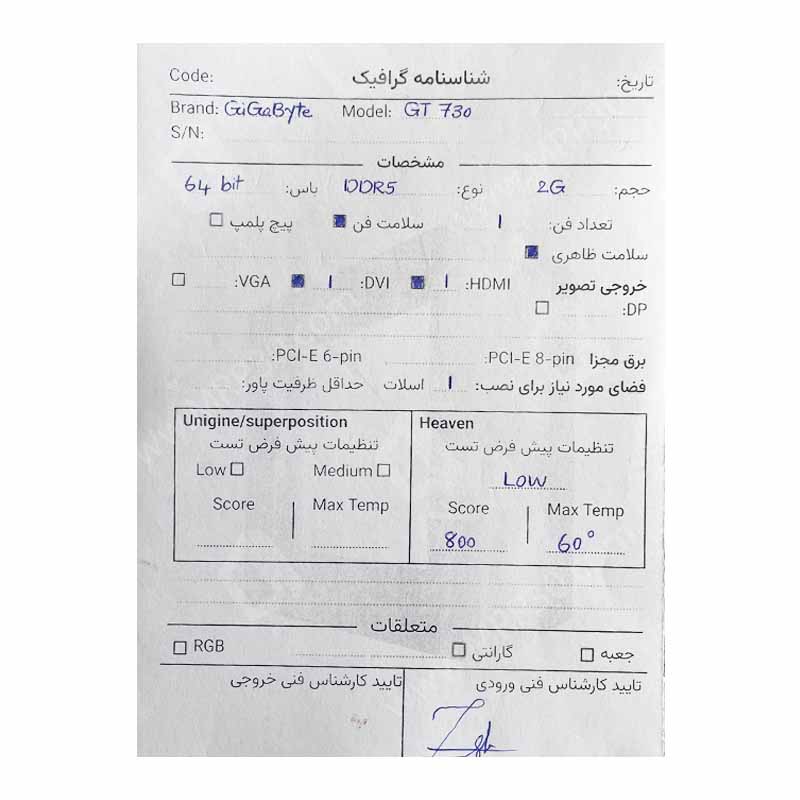 Code: شناسنامه گرافیک تاریخ:
Brand: GiGaByte Model: GT 730
S/N:
مشخصات
حجم: 2G نوع: DDR5 باس: 64 bit
تعداد فن: 1 سلامت فن پیچ پلمپ
سلامت ظاهری
خروجی تصویر HDMI: 1 DVI: 1 VGA:
DP:
برق مجزا PCI-E 8-pin: PCI-E 6-pin:
فضای مورد نیاز برای نصب: 1 اسلات حداقل ظرفیت پاور:
Unigine/superposition
تنظیمات پیش فرض تست
Low Medium
Score Max Temp
Heaven
تنظیمات پیش فرض تست
Low
Score Max Temp
800 60°
متعلقات
جعبه گارانتی RGB
تایید کارشناس فنی ورودی تایید کارشناس فنی خروجی